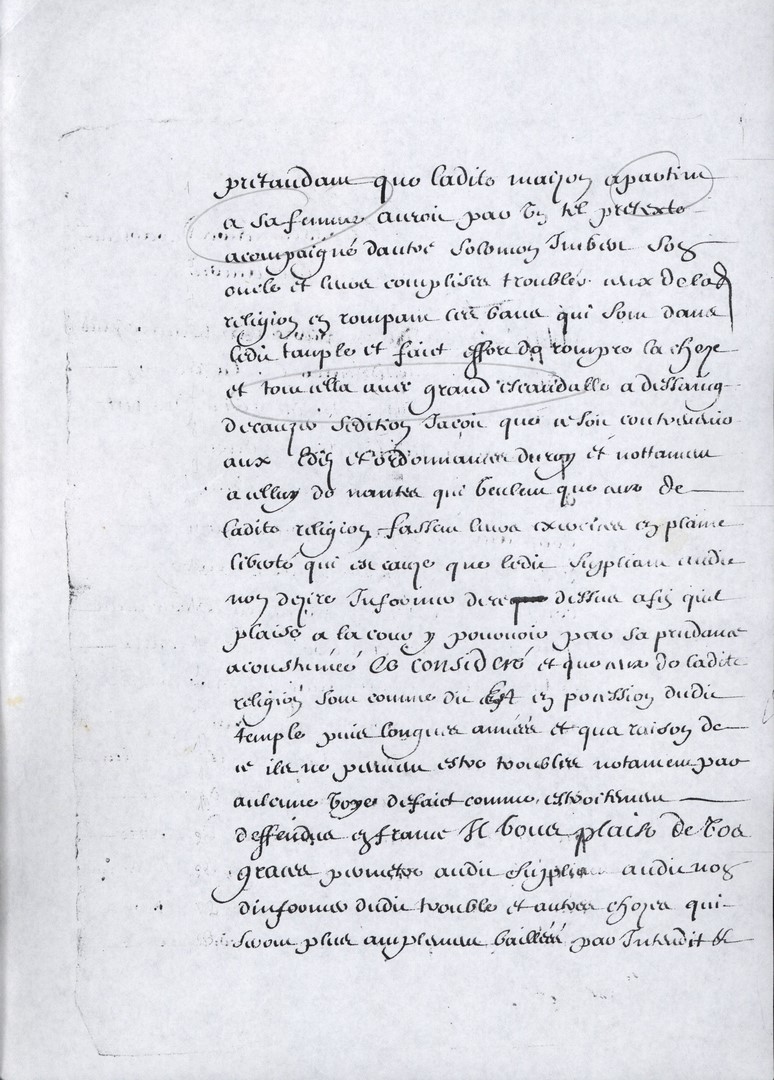 pretandant que ladite maizon apartint
a sa femme auroit par un tel pretexte
acompaigné dautre Solomon Imbert son
oncle et leurs complises troublés ceux de lad
religion en rompant les bancs qui sont dans
ledit tanple et faict effort de rompre la cheze
et tout cella avec grand escandalle a dessaing
de cauzer sedition Jacoit que ce soit contrevenir
aux Edis et ordonnances du roy et nottament
a celluy de nantes qui veulent que ceux de
ladite religion fassent leurs exercices en plaine
liberté qui est cauze que ledit supliant audit
non dezire Informer de ce dessus afin quil
plaise a la cour y pourvoir par sa prudance
acoustumée Ce consideré et que ceux de ladite
religion sont comme dit est en pocession dudit
temple puis longues années et qua raison de
ce ils ne peuvent estre troubles notament par
aulcune voye de faict comme estroitement
deffendue en france Il vous plaise de vos
graces permetre audit supliant audit non
dinformer dudit trouble et autres chozes qui
seront plus amplement baillées par Intendit &